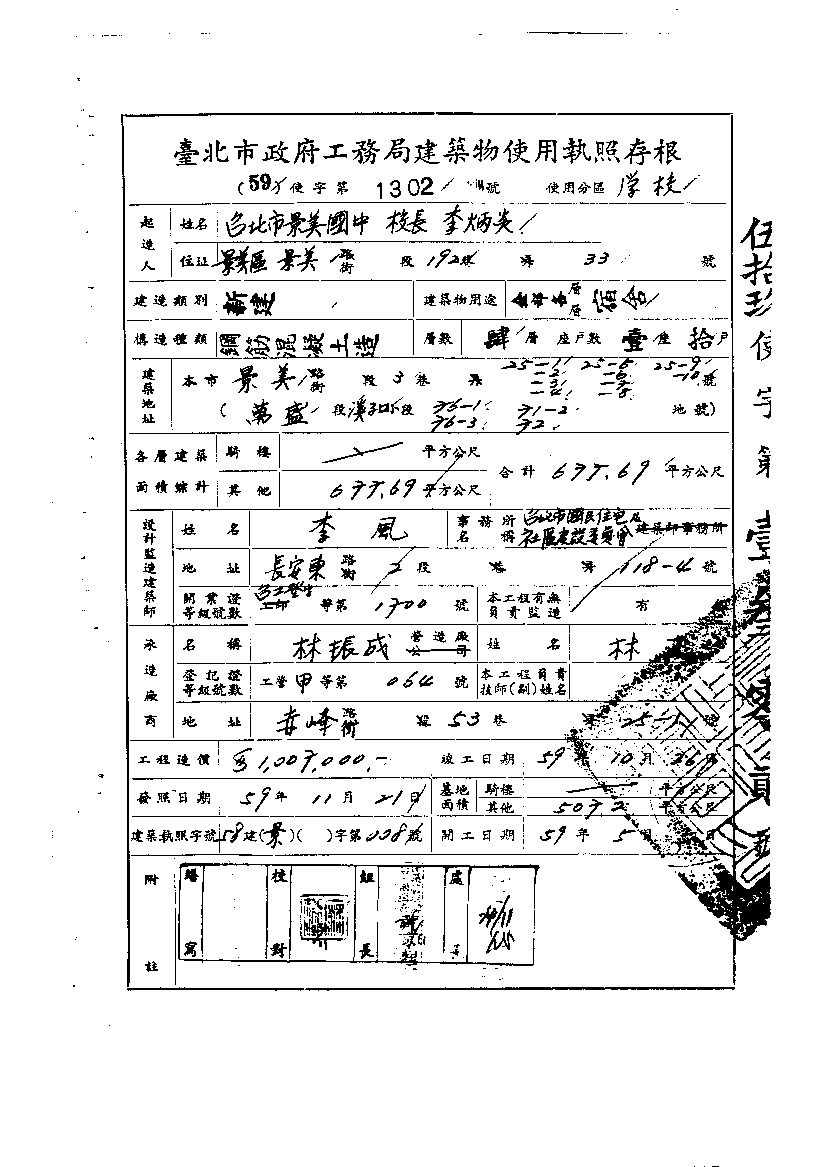 臺北市政府工務局建築物使用執照存根
(59)使字第1302號 使用分區 学校
起造人 姓名 台北市景美國中 校長 李炳炎
住址 景美區 景美 路街 段 192巷 弄 33 號
建造類別 新建 建築物用途 層層 宿舍
構造種類 鋼筋混凝土造 層數 肆層 座戶數 壹座 拾戶
建築地址 本市 景美 路街 段 3巷 弄 25-1 -2 -3 -4 25-5 -6 -7 -8 25-9 -10 號
(萬盛 段溪子口小段 76-1 76-3 71-2 72 地號)
各層建築面積總計 騎樓 平方公尺 合計 677.69 平方公尺
其他 677.69 平方公尺
設計監造建築師 姓名 李風 事務所名稱 台北市國民住宅及社區建設委員會 建築師事務所
地址 長安東 路街 2段 巷 弄 118-4 號
開業證等級號數 等第 1700 號 本工程有無負責監造 有
承造廠商 名稱 林振成 營造廠公司 姓名 林
登記證等級號數 工營甲等第 064 號 本工程負責技師(副)姓名
地址 赤峰 路街 段 53 巷 弄 25-1 號
工程造價 1,007,000,- 竣工日期 59年10月26日
發照日期 59年11月21日 基地面積 騎樓 平方公尺
其他 5072 平方公尺
建築執照字號 58建(景)( )字第008號 開工日期 59年5月 日
附註 繕寫 校對 組長 處
伍拾玖使字第壹